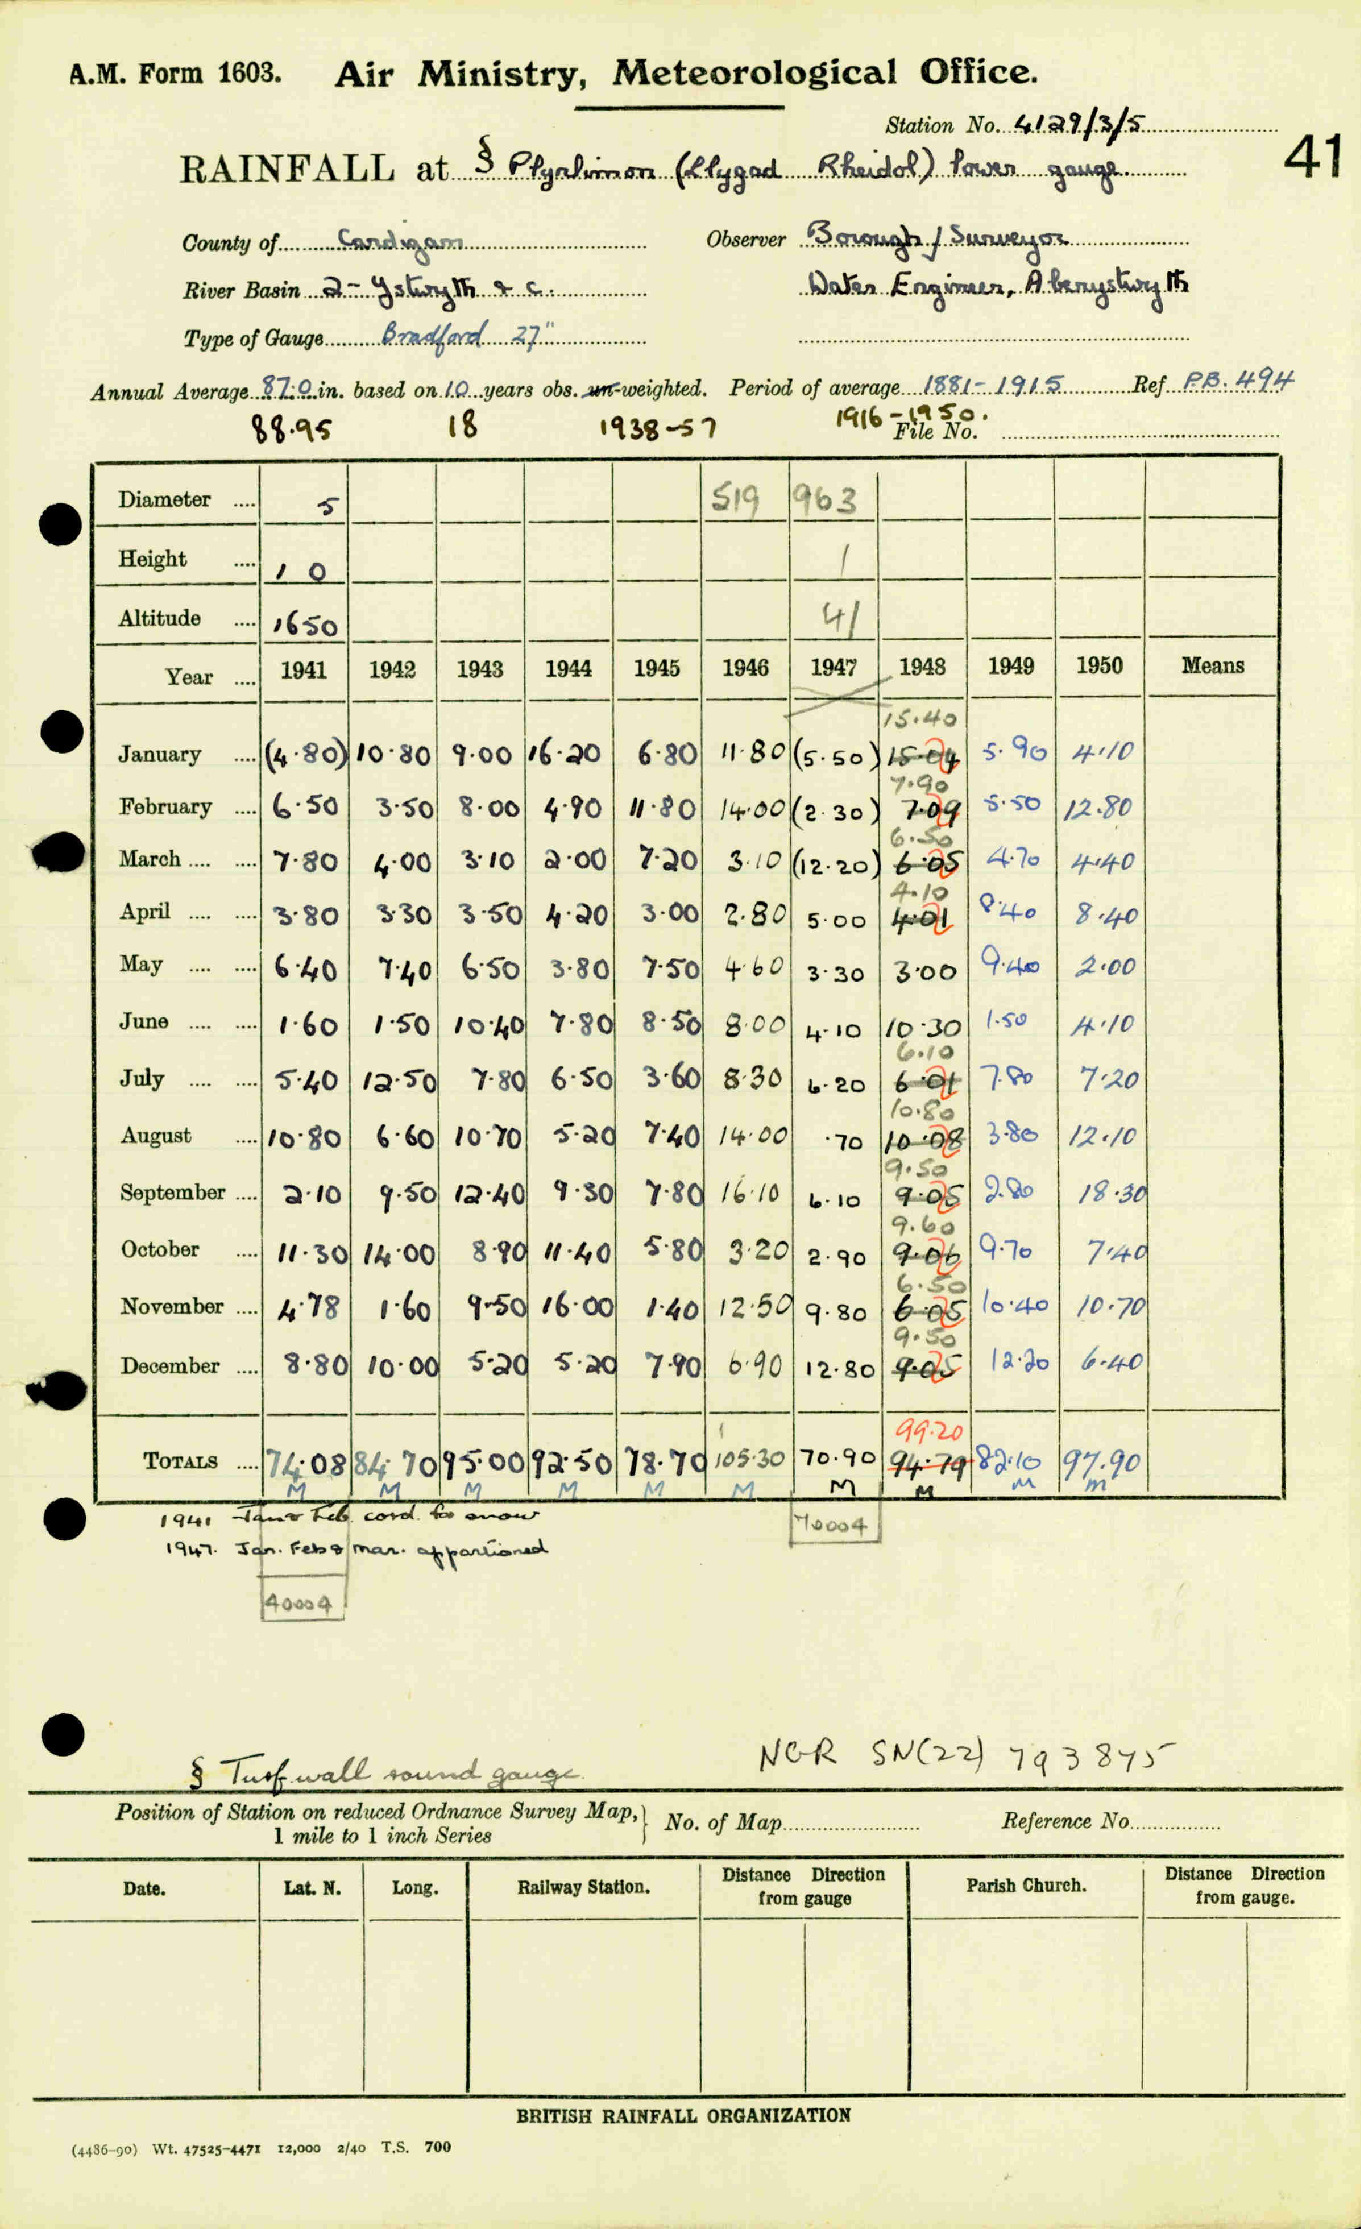 A.M. Form 1603. Air Ministry, Meteorological Office.
Station No. 4129/3/5
41
RAINFALL at § Plynlimon (Llygad Rheidol) lower gauge.
County of Cardigan Observer Borough Surveyor
River Basin 2- Ystwyth & c. Water Engineer, Aberystwyth
Type of Gauge Bradford 27"
Annual Average 87.0 in. based on 10 years obs. un-weighted. Period of average 1881-1915 Ref P.B. 494
88.95 18 1938-57 1916-1950. File No.
Diameter .... 5 519 963
Height .... 1 0 1
Altitude .... 1650 41
Year .... 1941 1942 1943 1944 1945 1946 1947 1948 1949 1950 Means
15.40
January .... (4.80) 10.80 9.00 16.20 6.80 11.80 (5.50) 15.04 5.90 4.10
7.90
February .... 6.50 3.50 8.00 4.90 11.80 14.00 (2.30) 7.09 5.50 12.80
6.50
March .... .... 7.80 4.00 3.10 2.00 7.20 3.10 (12.20) 6.05 4.70 4.40
4.10
April .... .... 3.80 3.30 3.50 4.20 3.00 2.80 5.00 4.01 8.40 8.40
May .... .... 6.40 7.40 6.50 3.80 7.50 4.60 3.30 3.00 9.40 2.00
June .... .... 1.60 1.50 10.40 7.80 8.50 8.00 4.10 10.30 1.50 4.10
6.10
July .... .... 5.40 12.50 7.80 6.50 3.60 8.30 6.20 6.01 7.80 7.20
10.80
August .... 10.80 6.60 10.70 5.20 7.40 14.00 .70 10.08 3.80 12.10
9.50
September .... 2.10 9.50 12.40 9.30 7.80 16.10 6.10 9.05 2.80 18.30
9.60
October .... 11.30 14.00 8.90 11.40 5.80 3.20 2.90 9.06 9.70 7.40
6.50
November .... 4.78 1.60 9.50 16.00 1.40 12.50 9.80 6.05 10.40 10.70
9.50
December .... 8.80 10.00 5.20 5.20 7.90 6.90 12.80 9.05 12.20 6.40
99.20
TOTALS .... 74.08 84.70 95.00 92.50 78.70 105.30 70.90 94.79 82.10 97.90
M M M M M M M M M M
1941 Jan & Feb. cord. for snow
70004
1947. Jan. Feb & Mar. apportioned
40004
NGR SN(22) 793875
§ Turf wall round gauge.
Position of Station on reduced Ordnance Survey Map, 1 mile to 1 inch Series } No. of Map Reference No.
Date. Lat. N. Long. Railway Station. Distance Direction from gauge Parish Church. Distance Direction from gauge.
BRITISH RAINFALL ORGANIZATION
(4486-90) Wt. 47525-4471 12,000 2/40 T.S. 700